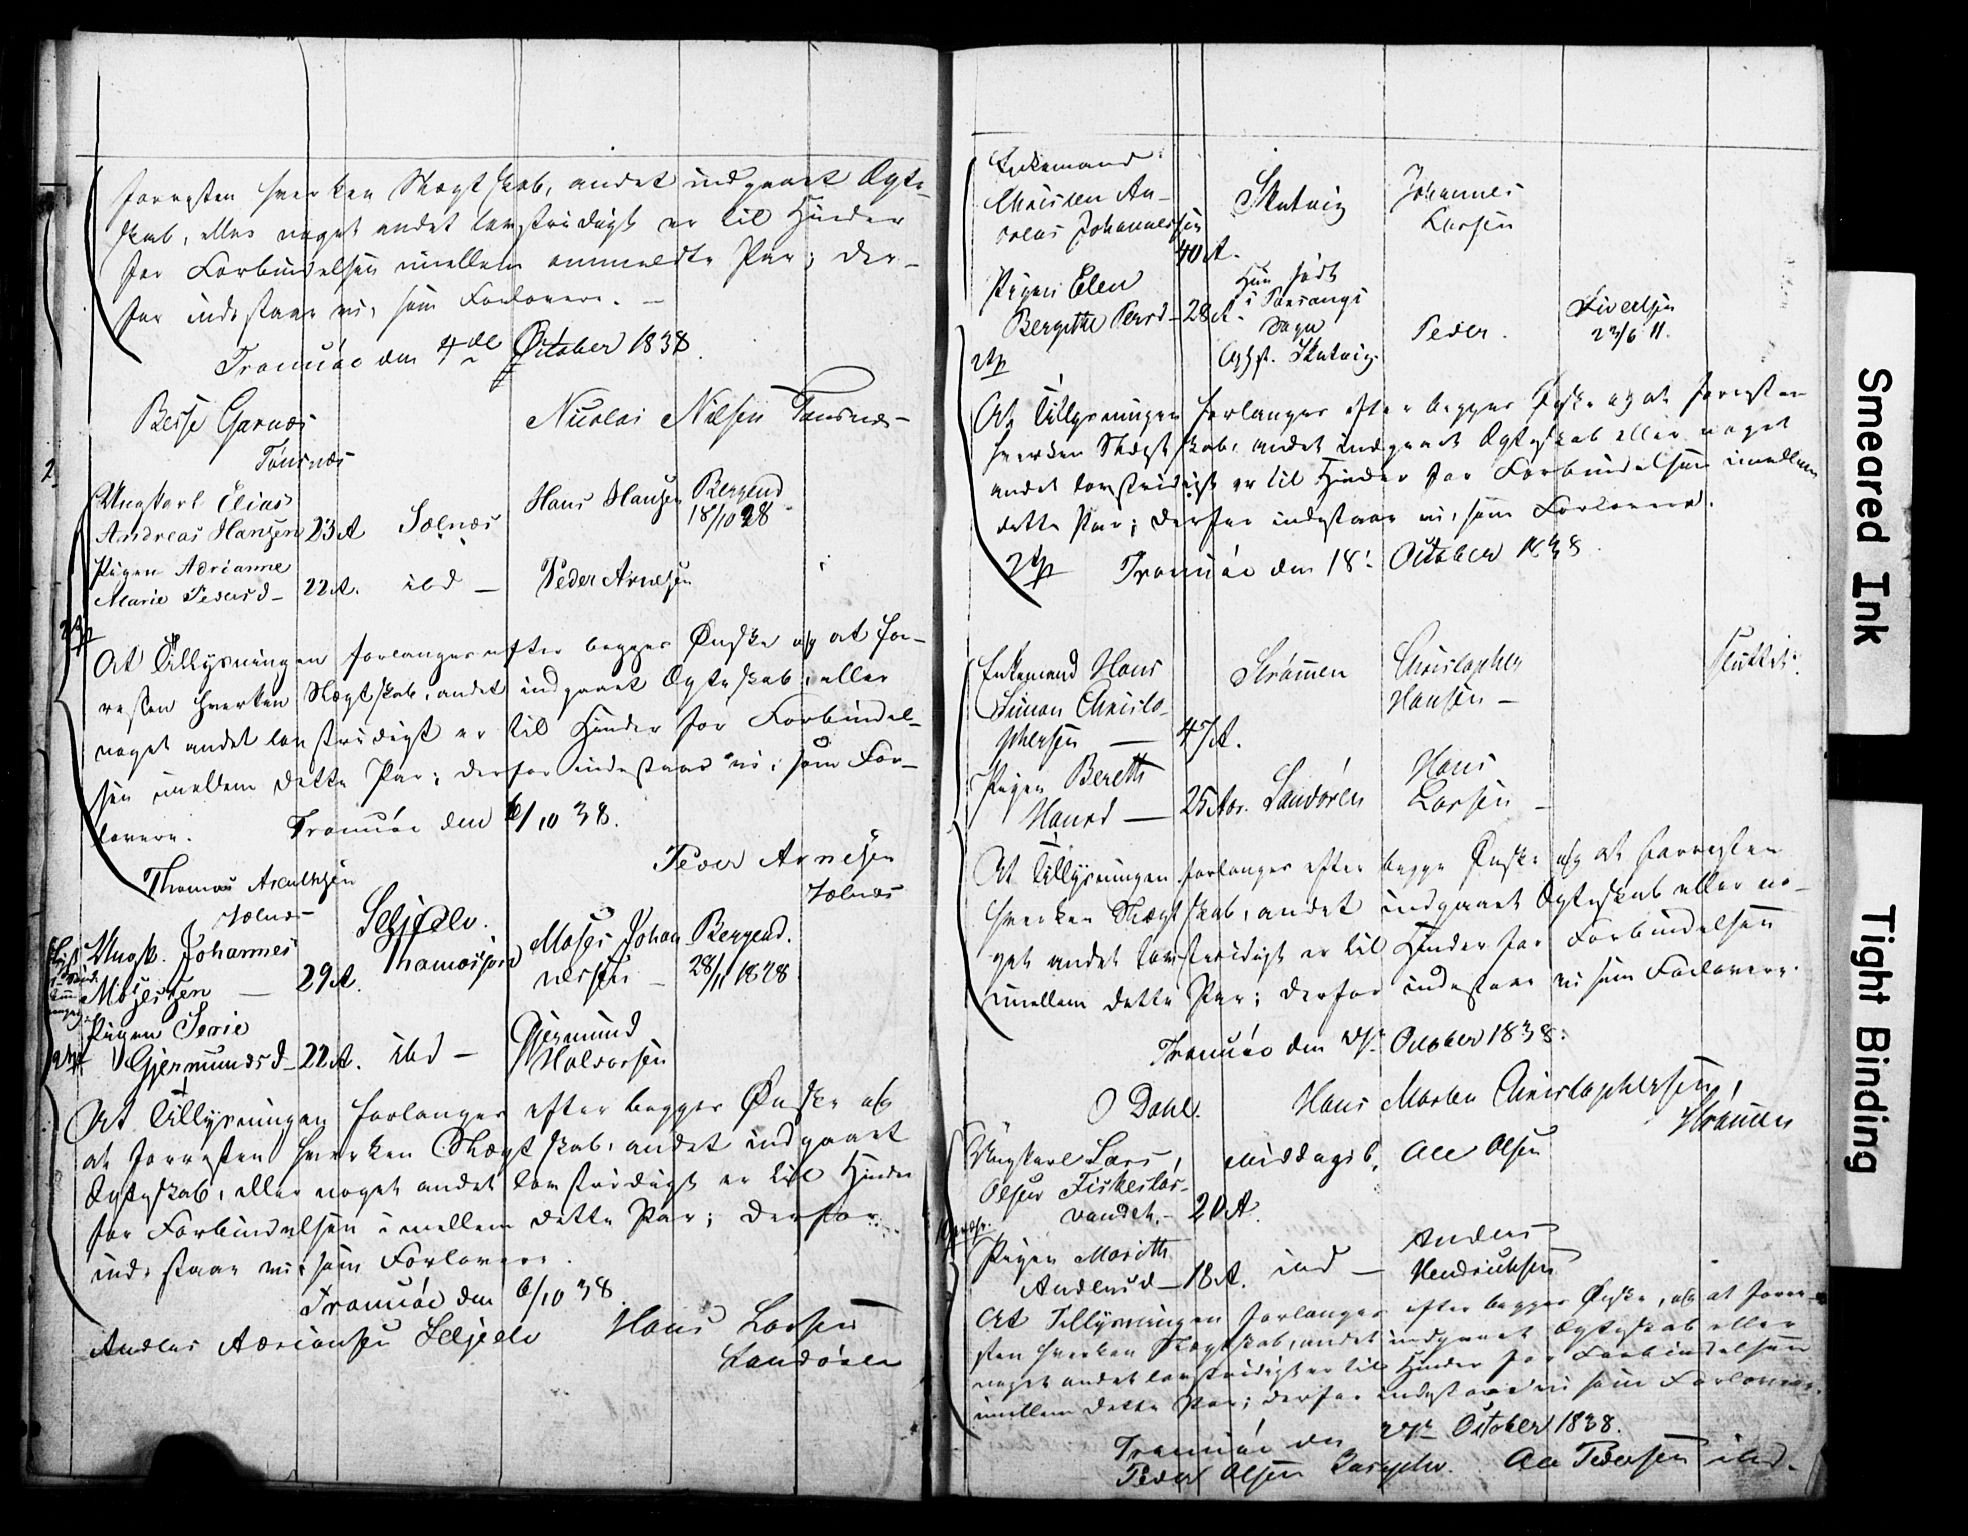 forresten hverken Slægtskab, andet indgaaet Ægte-
skab, eller noget andet lovstridigt er til Hinder
for Forbindelsen imellem anmeldte Par; der-
for indestaae vi, som Forlovere. —
Tromsöe den 4de October 1838.
Nicolai Nilsen Tønsnæs
Tønsnæs
2.
Ungkarl Elias
Andreas Hansen 23 A Sølnæs Hans Hansen Bergend
18/10 28
Pigen Adrianne
Marie Pedersd — 22 A. ibd — Peder Arnesen
At Tillysningen forlanges efter begges Ønske og at for-
resten hverken Slægtskab, andet indgaaet Ægteskab, eller
noget andet lovstridigt er til Hinder for Forbindel-
sen imellem dette Par; derfor indestaae vi, som For-
lovere. Tromsöe den 6/10 38.
Peder Arnesen
Thomas
Seljeelv.
Ungk. Johannes
Mosesen — 29 A. Thomasjord Moses Johan Bergend.
nessen — 28/11 1828
Pigen
Gjermundsd — 22 A. ibd — Gjermund
Halvorsen
At Tillysningen forlanges efter begges Ønske og
at forresten hverken Slægtskab, andet indgaaet
Ægteskab, eller noget andet lovstridigt er til Hinder
for Forbindelsen imellem dette Par; derfor
indestaae vi, som Forlovere.
Tromsöe den 6/10 38.
Andreas Adriansen Seljeelv Hans Larsen
Sandøren
Enkemand
Christen An-
dreas Johannessen Skutvig Johannes
Larsen
40 A.
Pigen Elen
Bergithe Persd — 28 A. Hun født
i
Sogn
Opph. Skutvig. Peder.
23/6 11.
At Tillysningen forlanges efter begges Ønske og at forresten
hverken Slægtskab, andet indgaaet Ægteskab eller noget
andet lovstridigt er til Hinder for Forbindelsen imellem
dette Par; derfor indestaae vi, som Forlovere.
Tromsöe den 18. October 1838.
Enkemand Hans Strømmen Christopher
Simon Christo- Hansen —
phersen — 47 A.
Pigen Bereth Hans
Hansd — 25 Aar. Sandøren Larsen —
At Tillysningen forlanges efter begge Ønske og at forresten
hverken Slægtskab, andet indgaaet Ægteskab eller no-
get andet lovstridigt er til Hinder for Forbindelsen
imellem dette Par; derfor indestaae vi som Forlovere.
Tromsöe den October 1838.
O Dahl. Hans Morten Christophersen,
Strømmen
Ungkarl Lars Middagsb. Ole Olsen
Olsen
Pigen Marith Anders
Andersd — 18 A. ibd — Hendrichsen
At Tillysningen forlanges efter begges Ønske, og at forre-
sten hverken Slægtskab, andet indgaaet Ægteskab eller
noget andet lovstridigt er til Hinder for Forbindelsen
imellem dette Par; derfor indestaae vi som Forlovere.
Tromsöe den October 1838.
Peder Olsen Ole Pedersen ibd.
Smeared Ink
Tight Binding